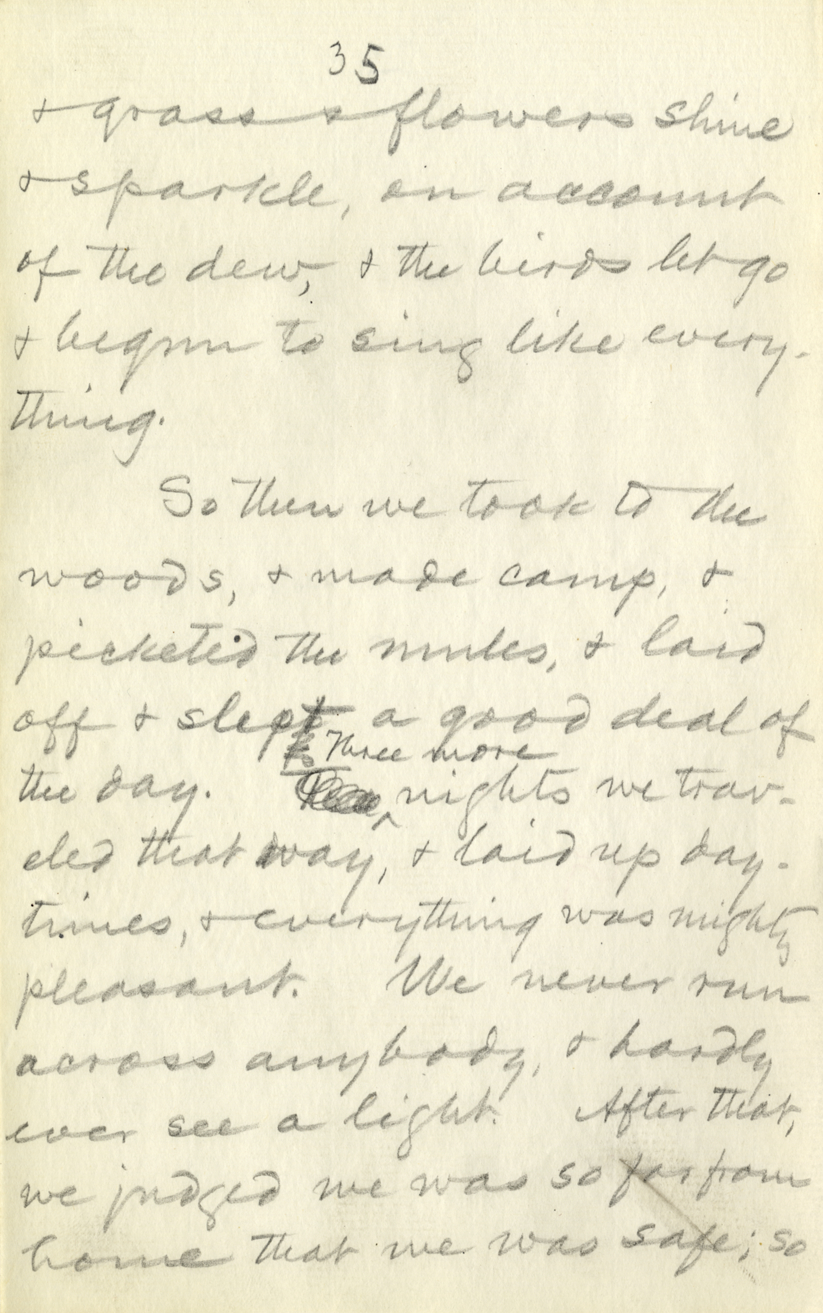 35
& grass & flowers shine
& sparkle, on account
of the dew, & the birds let go
& begun to sing like every-
thing.
So then we took to the
woods, & made camp, &
picketed the mules, & laid
off & slept a good deal of
Three more
the day. nights we trav-
eled that way, & laid up day-
times, & everything was mighty
pleasant. We never run
across anybody, & hardly
ever see a light. After that,
we judged we was so far from
home that we was safe; so